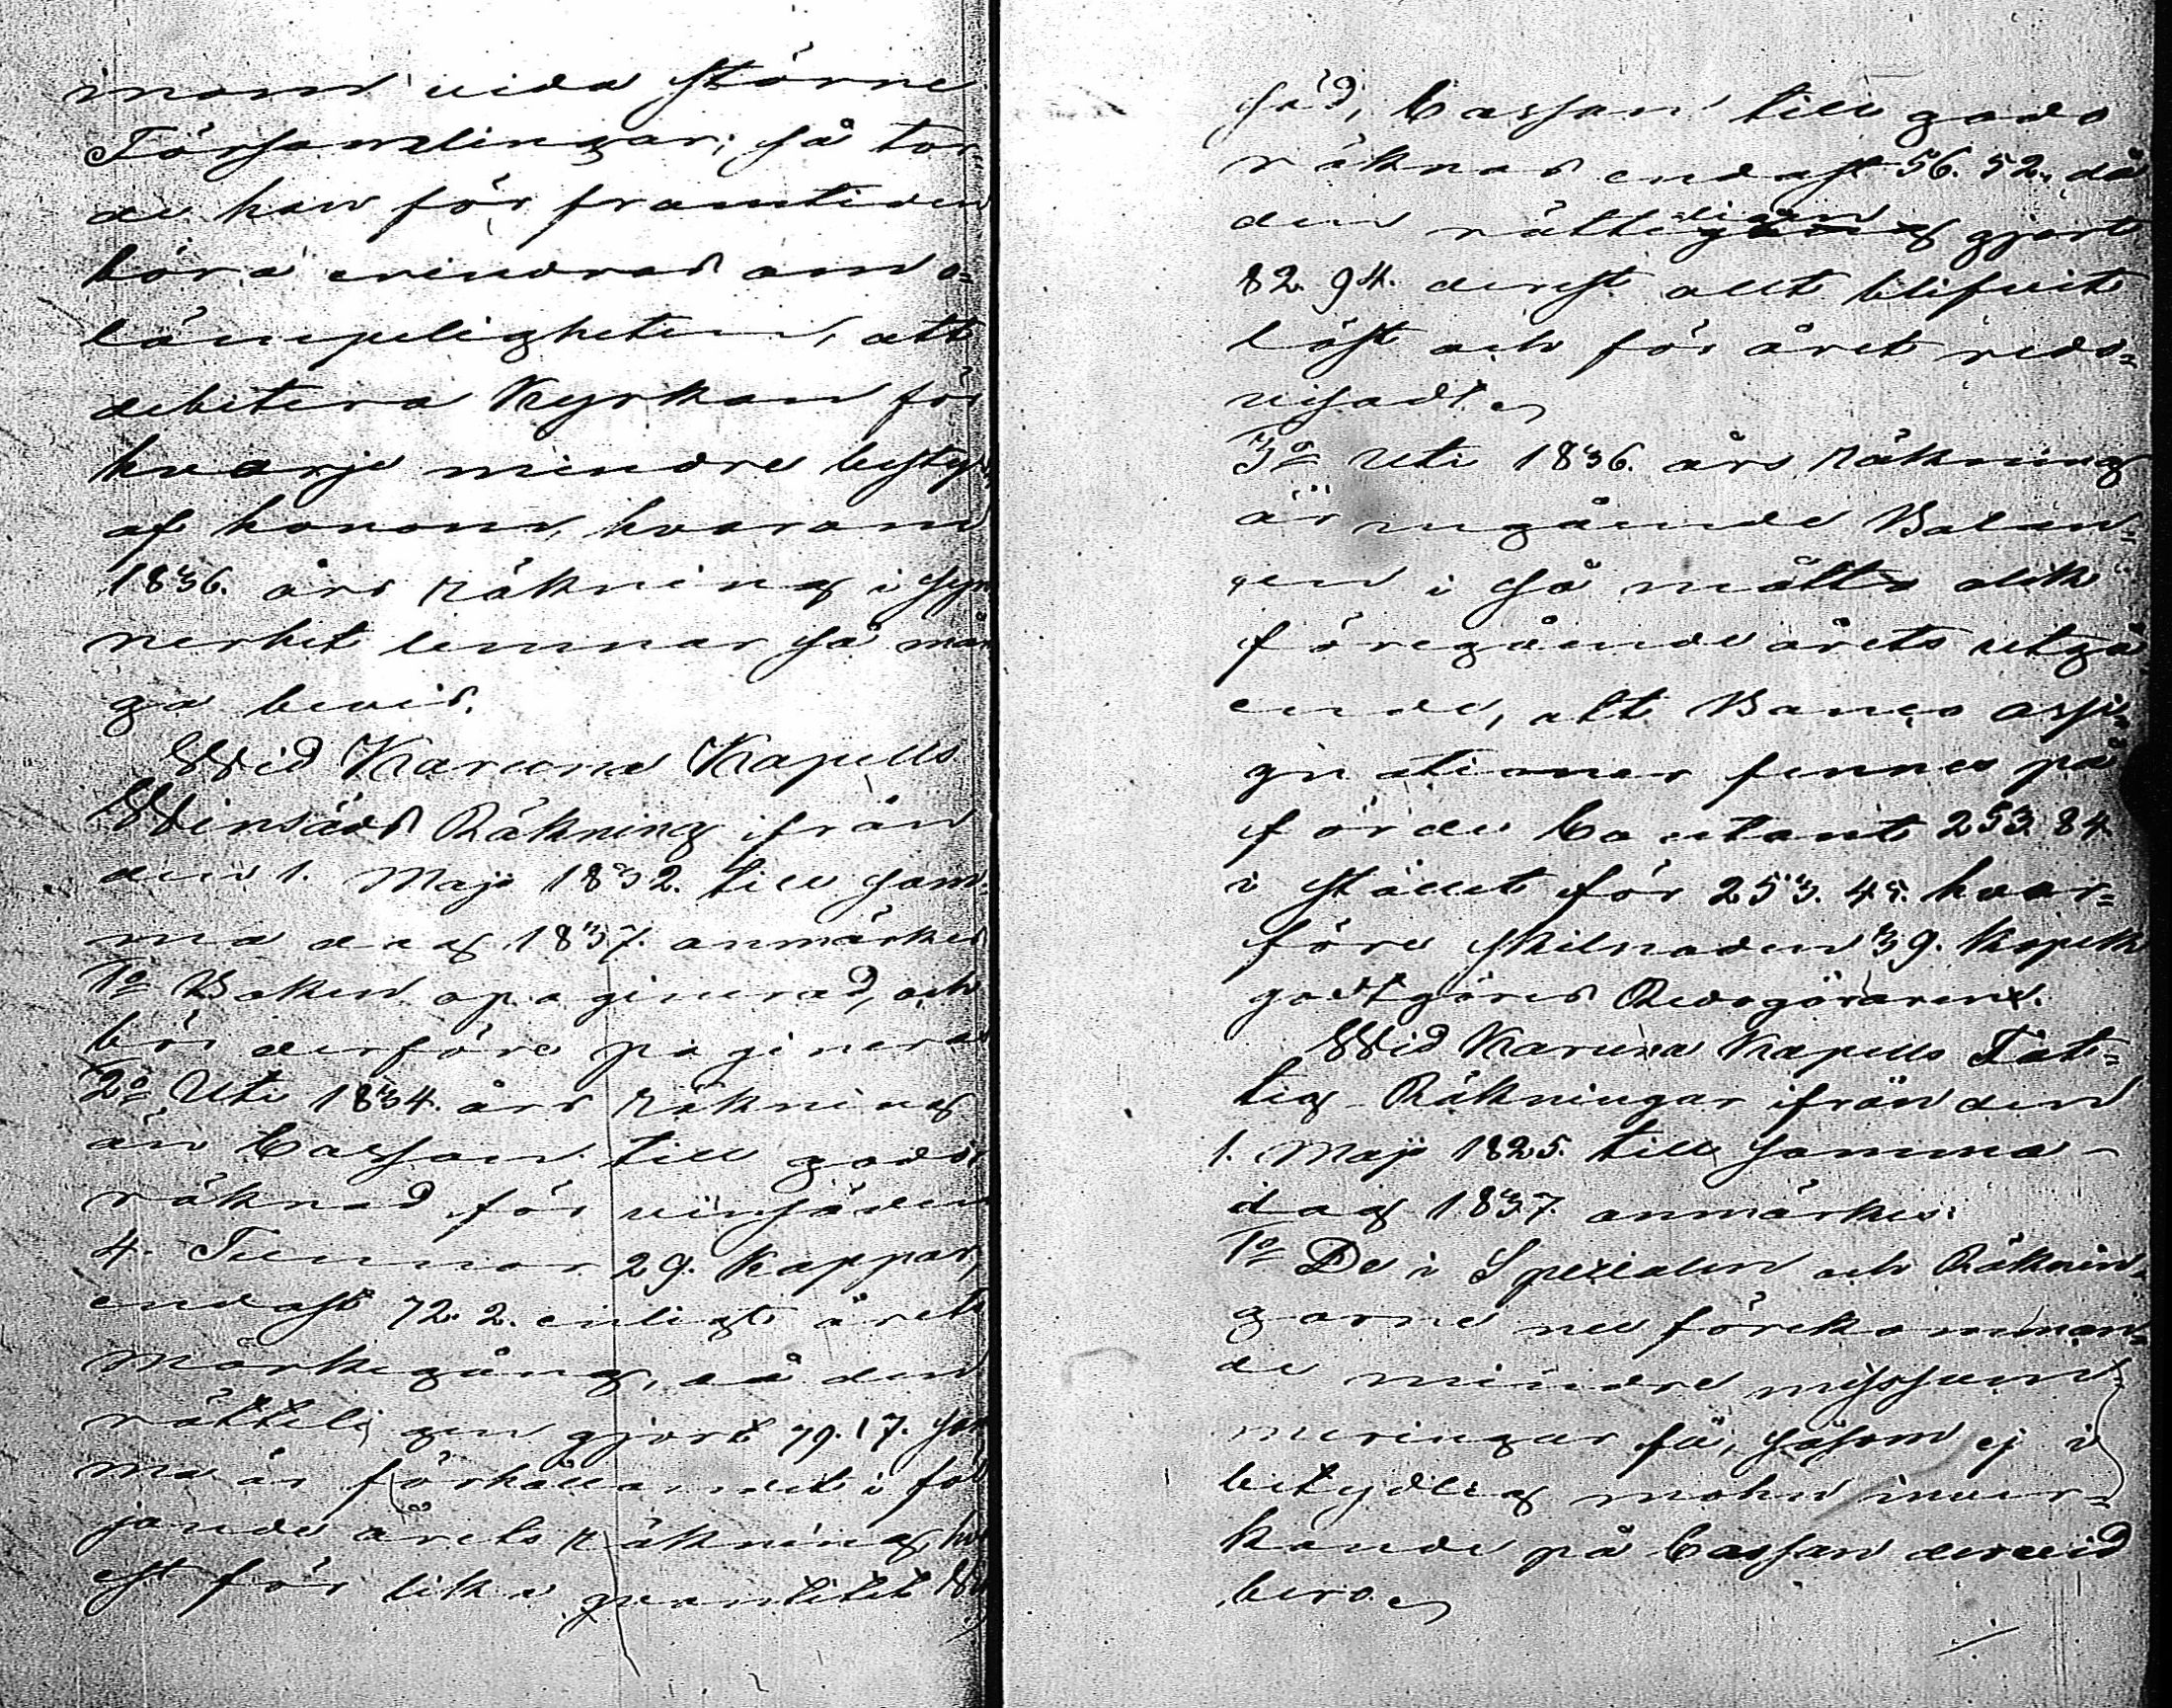 mom vida större
Församlingar; så tor
de han för framtiden
böra erindras om o=
lämpeligheten, att
debitera Kyrkan för
hvarje mindre besty
af honom, hvarom
1836. års Räkning i syn
nerhet lemnar så mån
ga bevis.
Wid Karuna Kapells
Winsäds Räkning ifrån
den 1. Maji 1832. till sam
ma dag 1837. anmärkes
1o Boken opaginerad, och
bör derföre pagineras
2o Uti 1834. års Räkning
är Cassan till godo
räknad för vinsäden
4. Tunnor 29. Kappar,
endast 72. 2. enligt årets
Markegång, då den
rätteligen gjort 79. 17. Sam
ma är förhållandet i föl
jande årets Räkning,
est för lika quantitet
säd, Cassan till godo
räknas endast 56. 52. då
den rätteligen gjort
82. 94. derest allt blifvit
löst och för året redo=
visadt.
3o Uti 1836. års Räkning
är ingående Balan=
sen i så måtto olik
föregående årets utgå
ende, att Banco assi=
gnationer finnes på
förde Contant 253. 84.
i stället för 253. 45. hvar=
före skilnaden 39. Kopek
godtgöres Redogöraren.
Wid Karuna Kapells Fat=
tig Räkningar ifrån den
1. Maji 1825. till samma
dag 1837. anmärkes:
1o De i Specialen och Räknin=
garne förekomman=
de mindre missum=
meringar få, såsom ej i
betydlig mohn inver=
kande på Cassan dervid
bero.